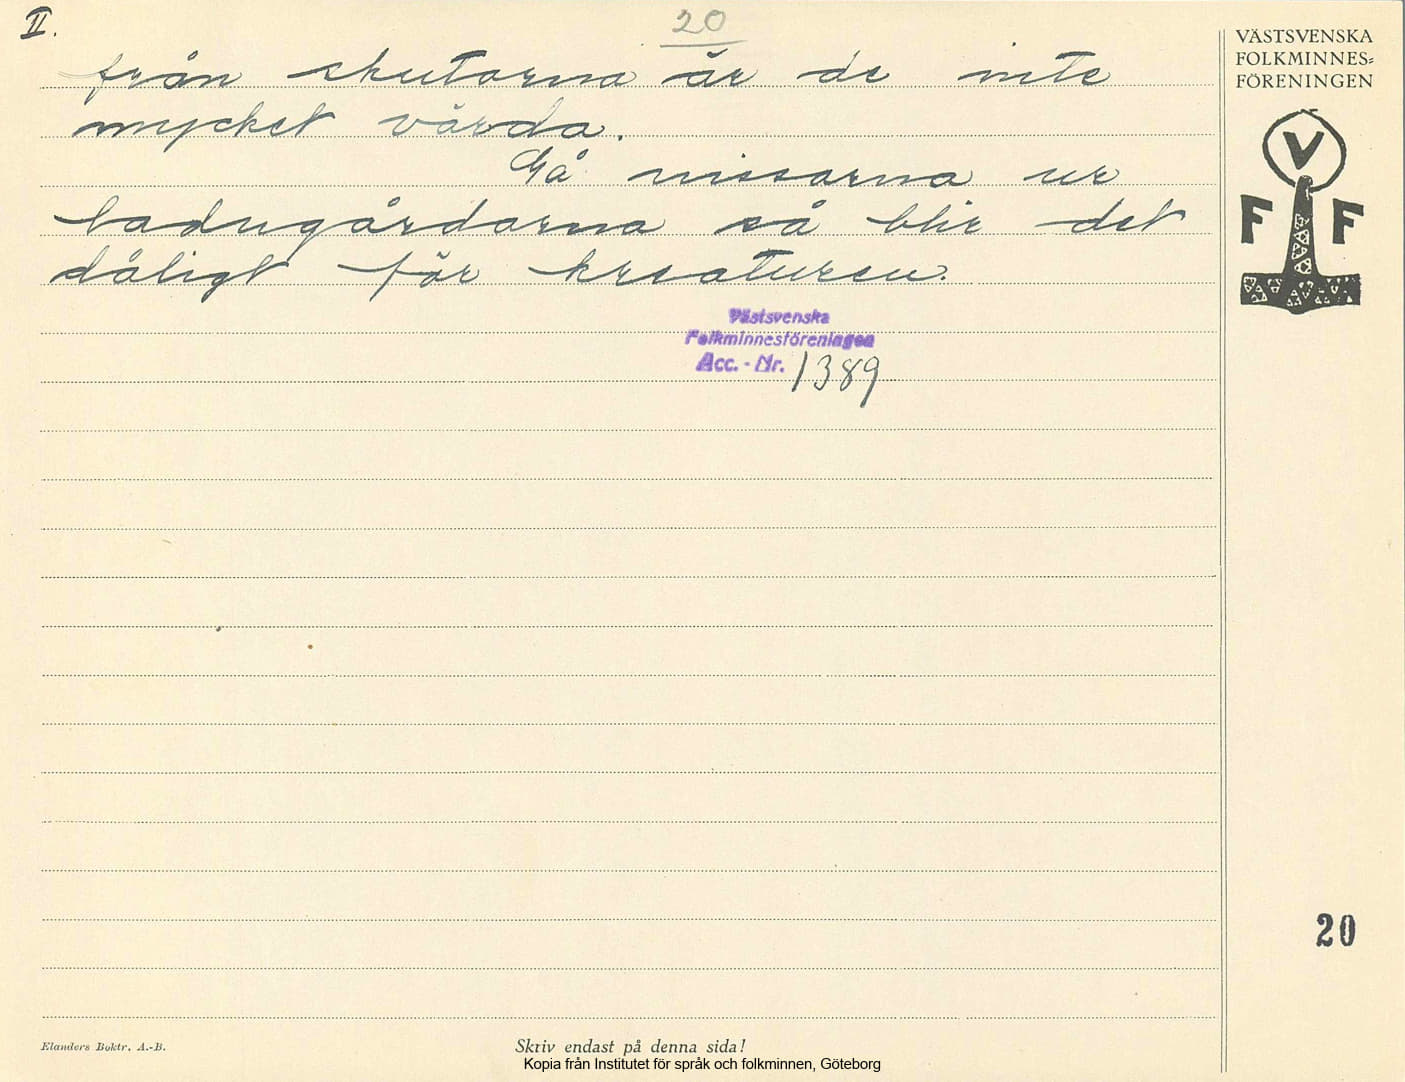 II.
20
från skutorna är de inte
mycket värda.
Gå nissarna ur
ladugårdarna så blir det
dåligt för kreaturen.
Västsvenska
Folkminnesföreningen
Acc. - Nr. 1389
VÄSTSVENSKA
FOLKMINNES=
FÖRENINGEN
V
F F
20
Elanders Boktr. A.-B.
Skriv endast på denna sida!
Kopia från Institutet för språk och folkminnen, Göteborg